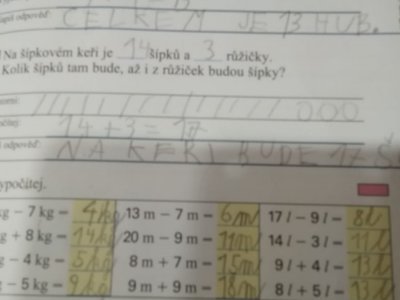 CELKEM JE 13 HUB.
Na šípkovém keři je 14 šípků a 3 růžičky.
Kolik šípků tam bude, až i z růžiček budou šípky?
14 + 3 = 17
odpověď: NA KEŘI BUDE 17 Š
ypočítej.
g − 7 kg = 4 kg 13 m − 7 m = 6 m 17 l − 9 l = 8 l
g + 8 kg = 14 kg 20 m − 9 m = 11 m 14 l − 3 l = 11 l
− 4 kg = 5 kg 8 m + 7 m = 15 m 9 l + 4 l = 13 l
− 5 kg = 9 kg 9 m + 9 m = 18 m 8 l + 5 l = 13 l